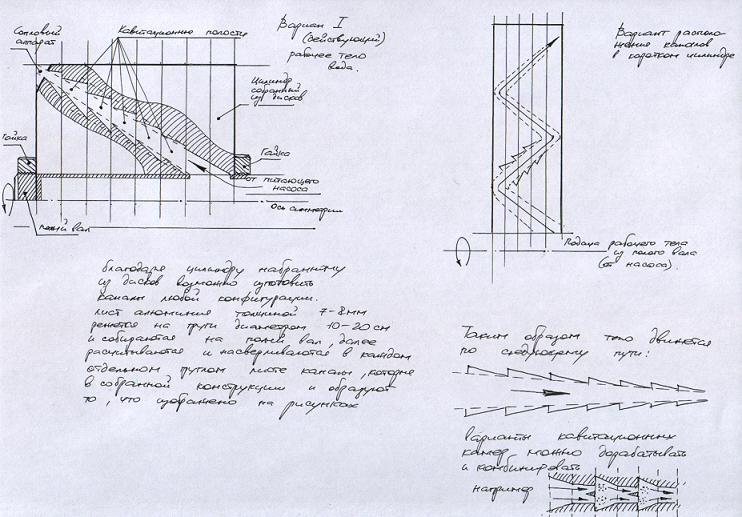 Сопловый
аппарат
Кавитационные полости
Вариант I
(действующий)
рабочее тело
вода.
Цилиндр
собранный
из дисков
Гайка
Гайка
от питающего
насоса
Ось симметрии
полый вал
Вариант располо
жения каналов
в коротком цилиндре
Подача рабочего тела
из полого вала
(от насоса).
благодаря цилиндру набранному
из дисков возможно изготовить
каналы любой конфигурации.
лист алюминия толщиной 7-8мм
режется на круги диаметром 10-20 см
и собираются на полый вал, далее
расчитываются и насверливаются в каждом
отдельном круглом листе каналы, которые
в собранной конструкции и образуют
то, что изображено на рисунках
Таким образом тело движется
по следующему пути:
Варианты кавитационных
камер можно дорабатывать
и комбинировать
например